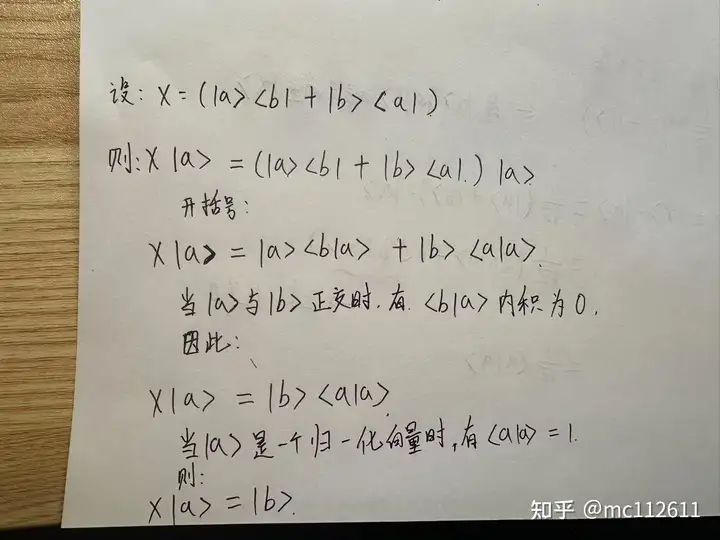 设: X = (|a> <b| + |b> <a|)
则: X |a> = (|a> <b| + |b> <a|.) |a>
开括号:
X |a> = |a> <b|a> + |b> <a|a>.
当 |a> 与 |b> 正交时. 有. <b|a> 内积为 0.
因此:
X |a> = |b> <a|a>
当 |a> 是一个归一化向量时, 有 <a|a> = 1.
则:
X |a> = |b>.
知乎 @mc112611